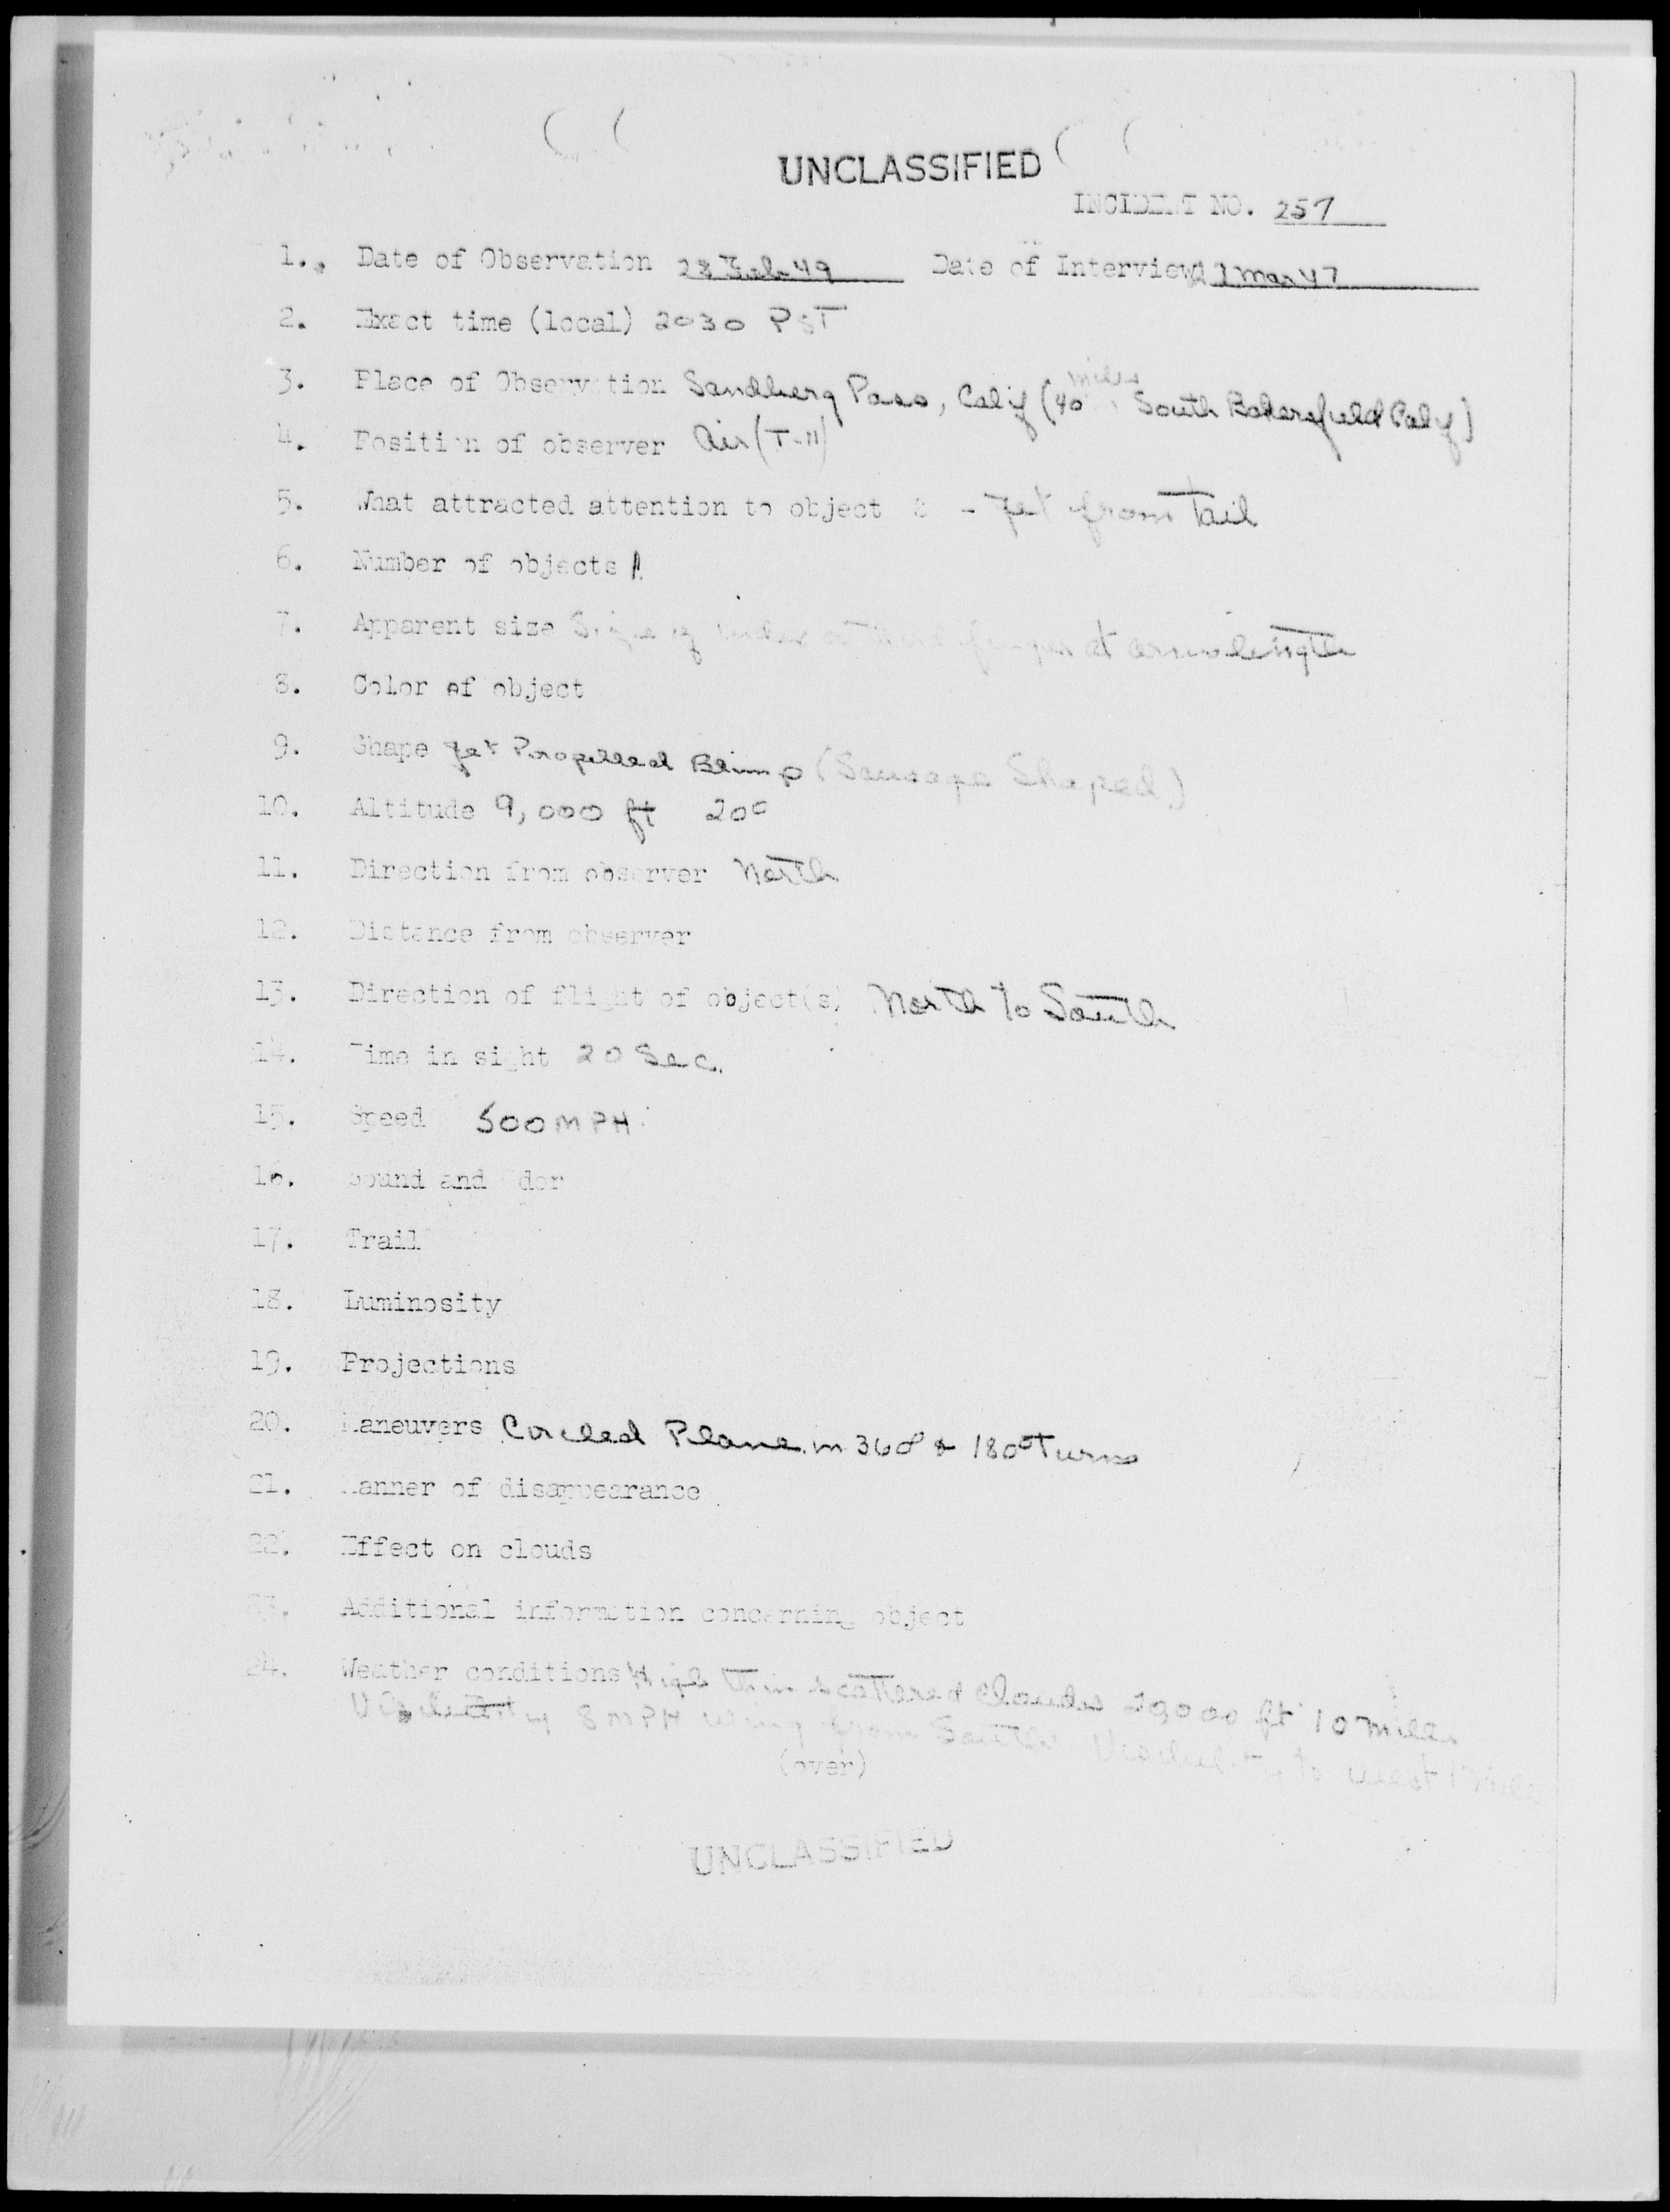 UNCLASSIFIED
INCIDENT NO. 257
1. Date of Observation 28 Feb 49 Date of Interview 1 Mar 47
2. Exact time (local) 2030 PST
3. Place of Observation Sandberg Pass, Calif (40 miles South Bakersfield Calif)
4. Position of observer Air (T-11)
5. What attracted attention to object - Jet from Tail
6. Number of objects 1
7. Apparent size Size of finger at arms length
8. Color of object
9. Shape Jet Propelled Blimp (Sausage Shaped)
10. Altitude 9,000 ft 20°
11. Direction from observer North
12. Distance from observer
13. Direction of flight of object(s) North to South
14. Time in sight 20 Sec.
15. Speed 500 MPH
16. Sound and Odor
17. Trail
18. Luminosity
19. Projections
20. Maneuvers Circled Plane in 360° & 180° Turns
21. Manner of disappearance
22. Effect on clouds
23. Additional information concerning object
24. Weather conditions High thin scattered clouds ft 10 miles
8 MPH from South Visibility to west
(over)
UNCLASSIFIED